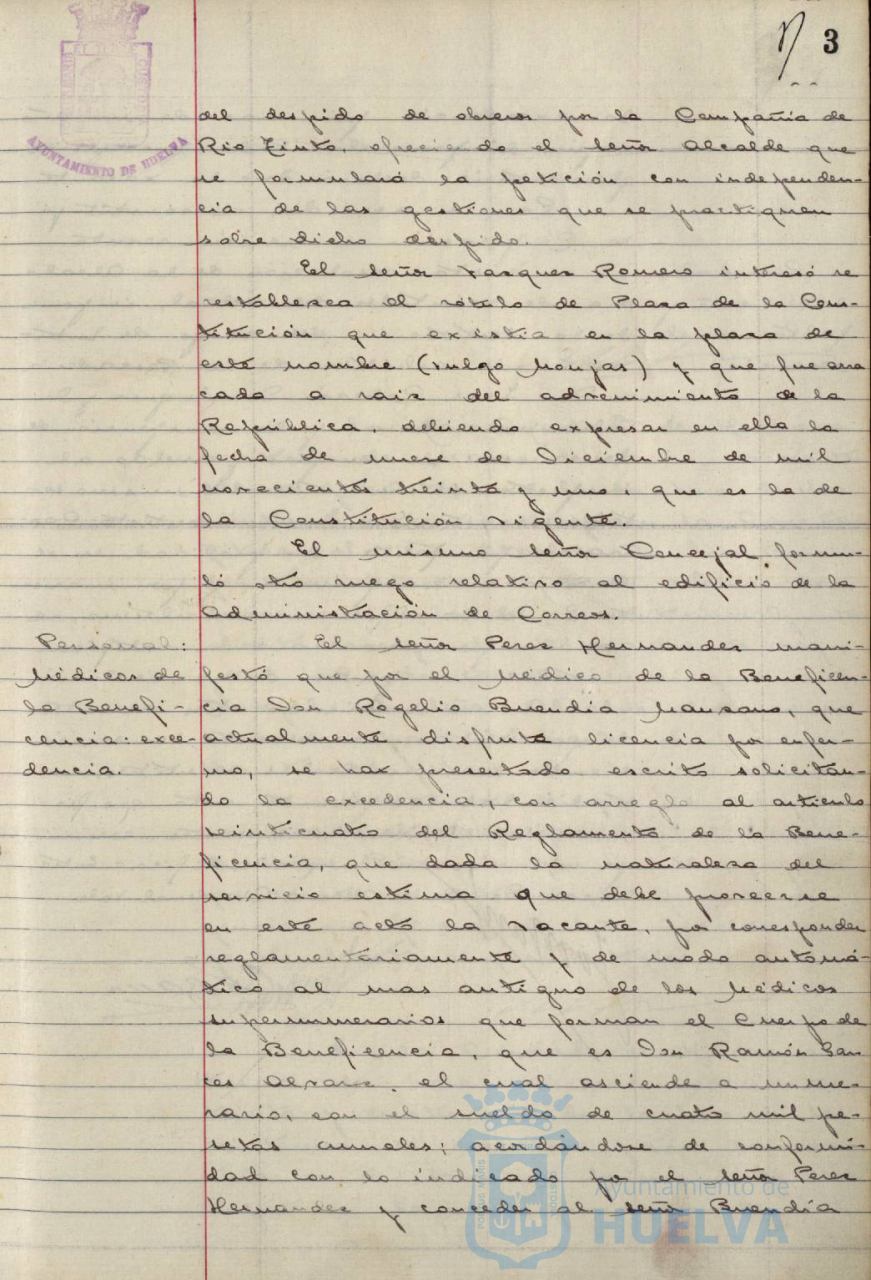 3
AYUNTAMIENTO DE HUELVA
del despido de obreros por la Compañía de
Rio Tinto, ofreciendo el señor Alcalde que
se formulará la petición con independen-
cia de las gestiones que se practiquen
sobre dicho despido.
El señor Vazquez Romero interesó se
restablezca el rótulo de Plaza de la Cons-
titución que existia en la plaza de
este nombre (vulgo Monjas) y que fue arra
cada a raiz del advenimiento de la
República, debiendo expresar en ella la
fecha de nueve de Diciembre de mil
novecientos treinta y uno, que es la de
la Constitución vigente.
El mismo señor Concejal formu-
ló otro ruego relativo al edificio de la
Administración de Correos.
Personal:
Médicos de
la Benefi-
cencia: exce-
dencia.
El señor Perez Hernandez mani-
festó que por el Médico de la Beneficen-
cia Don Rogelio Buendia Manzano, que
actualmente disfruta licencia por enfer-
mo, se hax presentado escrito solicitan-
do la excedencia, con arreglo al articulo
veinticuatro del Reglamento de la Bene-
ficencia, que dada la naturaleza del
servicio estima que debe proveerse
en este acto la vacante, por corresponder
reglamentariamente y de modo automá-
tico al mas antiguo de los Médicos
supernumerarios que forman el Cuerpo de
la Beneficencia, que es Don Ramón
el cual asciende a nume-
rario, con el sueldo de cuatro mil pe-
setas anuales; acordándose de conformi-
dad con lo indicado por el señor Perez
Hernandez y conceder al señor Buendía
Ayuntamiento de
HUELVA